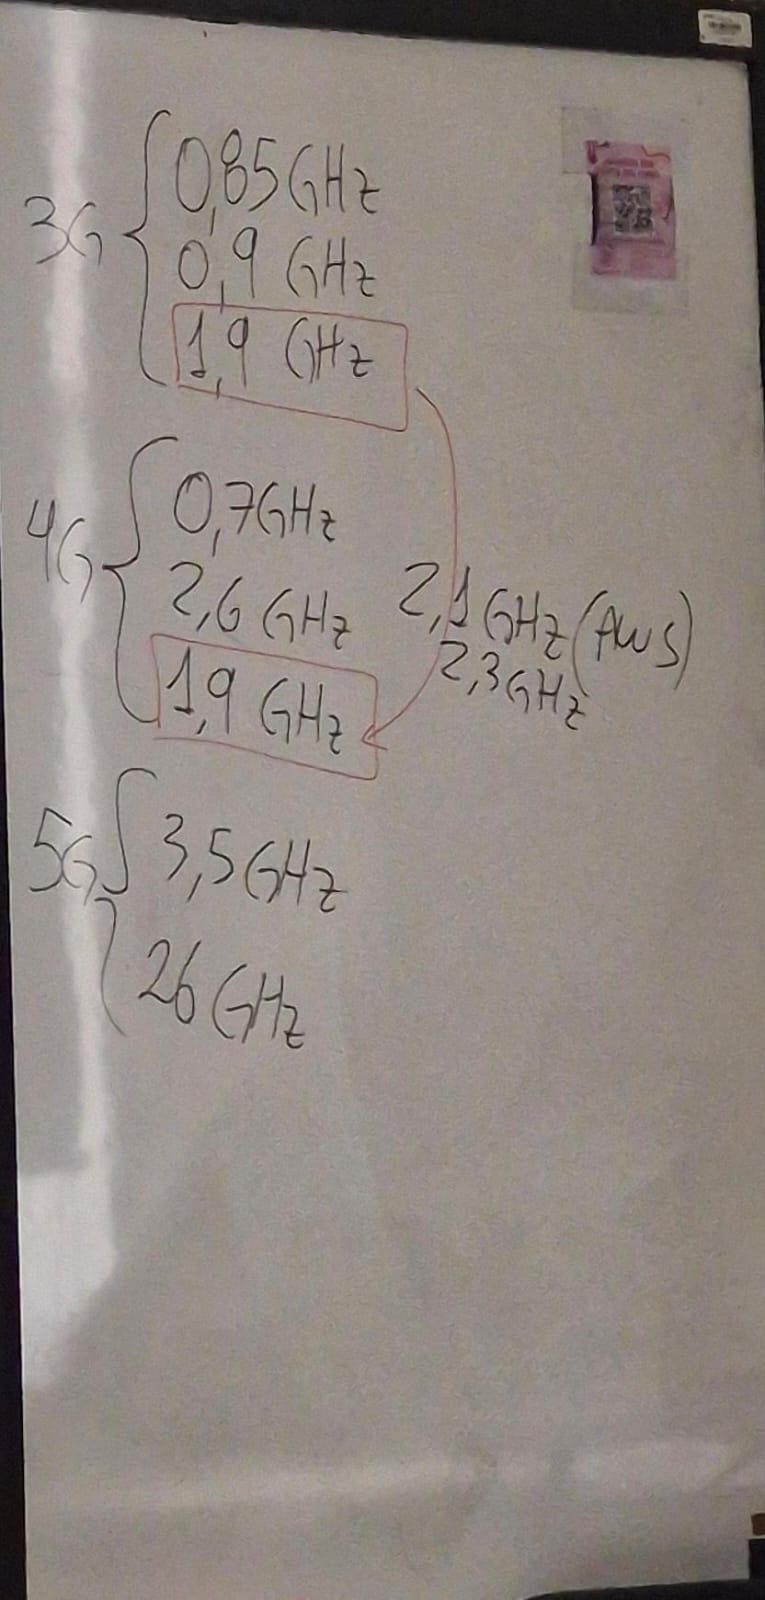 3G
0,85GHz
0,9 GHz
1,9 GHz
4G
0,7GHz
2,6 GHz
1,9 GHz
2,1GHz (AWS)
2,3GHz
5G
3,5GHz
26 GHz